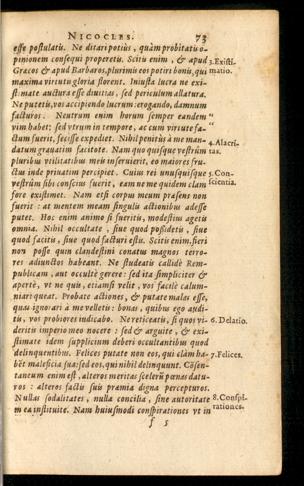 NICOCLES. 73
esse postulatis. Ne ditari potius, quàm probitatis o-
pinionem consequi properetis. Scitis enim, & apud
Græcos & apud Barbaros, plurimis eos potiri bonis, qui
maxima virtutis gloria florent. Iniusta lucra ne exi-
stimate auctura esse diuitias, sed periculum allatura.
Ne putetis, vos accipiendo lucrum: erogando, damnum
facturos. Neutrum enim horum semper eandem
vim habet: sed vtrum in tempore, ac cum virtute fa-
ctum fuerit, fecisse expediet. Nihil penitùs à me man-
datum grauatim facitote. Nam quo quisque vestrûm
pluribus vtilitatibus meis inseruierit, eo maiores fru-
ctus inde priuatim percipiet. Cuius rei vnusquisque
vestrûm sibi conscius fuerit, eam ne me quidem clam
fore existimet. Nam etsi corpus meum præsens non
fuerit: at mentem meam singulis actionibus adesse
putet. Hoc enim animo si fueritis, modestius agetis
omnia. Nihil occultate, siue quod possidetis, siue
quod facitis, siue quod facturi estis. Scitis enim, fieri
non posse quin clandestini conatus magnos terro-
res adiunctos habeant. Ne studeatis callidè Rem-
publicam, aut occultè gerere: sed ita simpliciter &
apertè, vt ne quis, etiamsi velit, vos facilè calum-
niari queat. Probate actiones, & putate malas esse,
quas ignorari à me velletis: bonas, quibus ego audi-
tis, vos probiores iudicabo. Ne reticeatis, si quos vi-
deritis imperio meo nocere: sed & arguite, & exi-
stimate idem supplicium deberi occultantibus quod
delinquentibus. Felices putate non eos, qui clàm ha-
bēt maleficia sua: sed eos, qui nihil delinquunt. Cōsen-
taneum enim est, alteros meritas scelerū pœnas datu-
ros: alteros factis suis præmia digna percepturos.
Nullas sodalitates, nulla concilia, sine autoritate
mea instituite. Nam huiusmodi conspirationes vt in
f 5
3. Existi-
matio.
“
“
4. Alacri-
tas.
5. Con-
scientia.
6. Delatio.
7. Felices.
8. Conspi-
rationes.